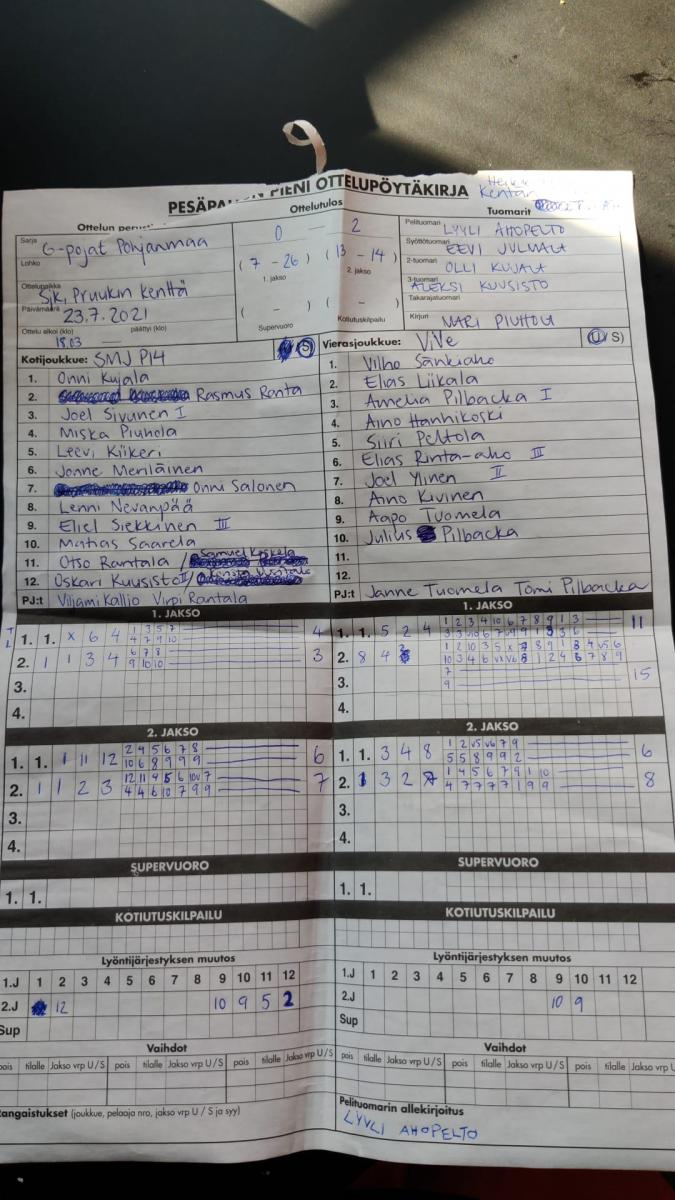 PESÄPA PIENI OTTELUPÖYTÄKIRJA
Kentän
Ottelun
Ottelutulos
Tuomarit
Sarja
G-pojat Pohjanmaa
Lohko
Ottelupaikka
Sjk, Pruukin kenttä
Päivämäärä
23.7.2021
Ottelu alkoi (klo) päättyi (klo)
18.03
0 — 2
(7 - 26) (13 - 14)
1. jakso 2. jakso
( - ) ( - )
Supervuoro Kotiutuskilpailu
Pelituomari LYYLI AHOPELTO
Syöttötuomari EEVI JULMALA
2-tuomari OLLI KUJALA
3-tuomari ALEKSI KUUSISTO
Takarajatuomari
Kirjuri MARI PIUHOLA
Kotijoukkue: SMJ P14 (S)
1. Onni Kujala
2. Rasmus Ranta
3. Joel Sivunen I
4. Miska Piuhola
5. Leevi Kiikeri
6. Jonne Meriläinen
7. Onni Salonen
8. Lenni Nevanpää
9. Eliel Siekkinen III
10. Matias Saarela
11. Otso Rantala /
12. Oskari Kuusisto II /
PJ:t Viljami Kallio Virpi Rantala
Vierasjoukkue: ViVe (U/S)
1. Vilho Sänkiaho
2. Elias Liikala
3. Amelia Pilbacka I
4. Aino Hanhikoski
5. Siiri Peltola
6. Elias Rinta-aho III
7. Joel Ylinen II
8. Aino Kivinen
9. Aapo Tuomela
10. Julius Pilbacka
11.
12.
PJ:t Janne Tuomela Tomi Pilbacka
1. JAKSO
1. 1. x 6 4 1 3 5 7 4
4 7 9 10
2. 1 1 3 4 6 7 8 3
9 10 10
3.
4.
1. JAKSO
1. 1. 5 2 4 1 2 3 4 10 6 7 8 9 1 3 11
2. 8 4
15
3.
4.
2. JAKSO
1. 1. 1 11 12 2 4 5 6 7 8 6
10 6 8 9 9 9
2. 1 1 2 3 12 11 4 5 6 10v 7 7
4 4 6 10 7 9 9
3.
4.
2. JAKSO
1. 1. 3 4 8 1 2 v5 v6 7 9 6
5 5 8 9 9 2
2. 1 3 2 7 1 4 5 6 7 9 1 10 8
4 7 7 7 7 1 9 9
3.
4.
SUPERVUORO
1. 1.
SUPERVUORO
1. 1.
KOTIUTUSKILPAILU
KOTIUTUSKILPAILU
Lyöntijärjestyksen muutos
1.J 1 2 3 4 5 6 7 8 9 10 11 12
2.J 12 10 9 5 2
Sup
Lyöntijärjestyksen muutos
1.J 1 2 3 4 5 6 7 8 9 10 11 12
2.J 10 9
Sup
Vaihdot
pois tilalle Jakso vrp U/S pois tilalle Jakso vrp U/S pois tilalle Jakso vrp U/S
Vaihdot
pois tilalle Jakso vrp U/S pois tilalle Jakso vrp U/S pois tilalle Jakso vrp U/S
Rangaistukset (joukkue, pelaaja nro, jakso vrp U / S ja syy)
Pelituomarin allekirjoitus
LYYLI AHOPELTO